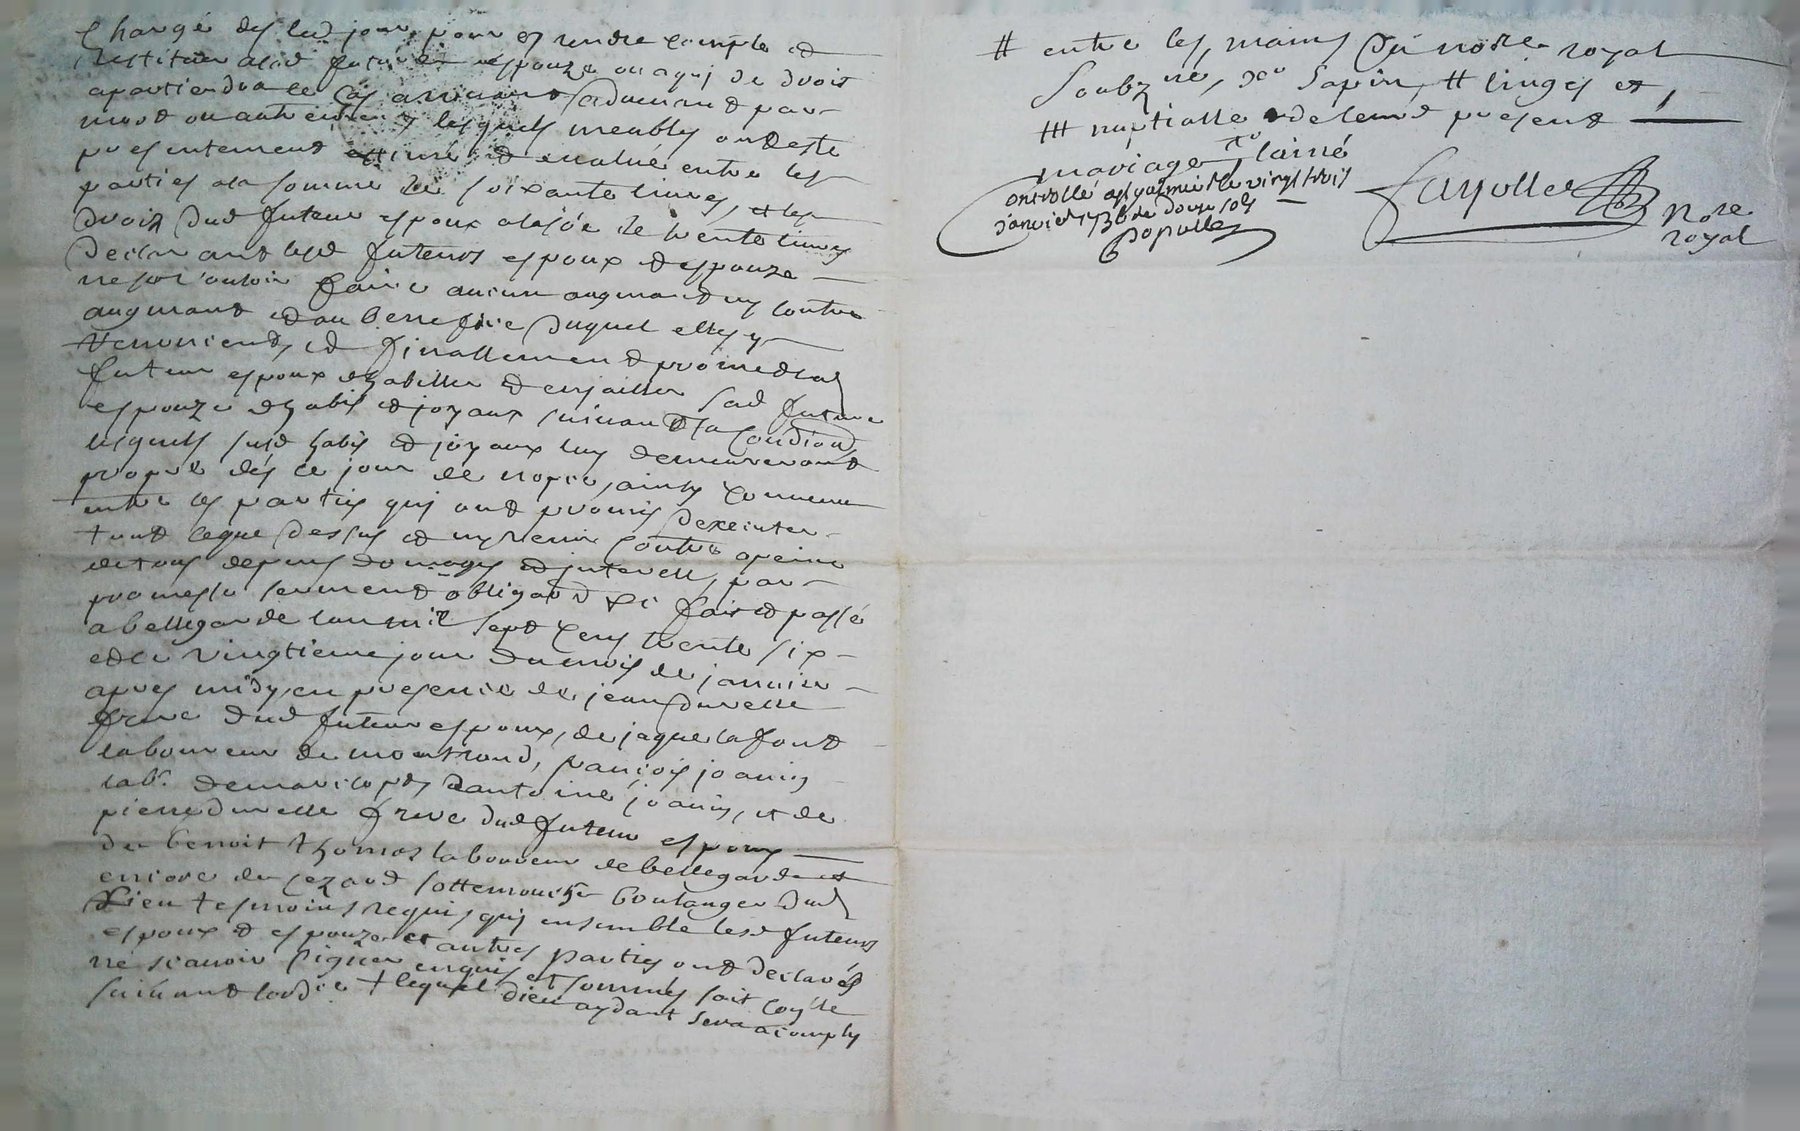 chargé des led jour pour en rendre compte et
restituer alad future espouze ou a quj de droit
apartiendra le cas arrivant advenant par
mort ou autrement lesquels meubles ont esté
presentement estimé et evalué entre les
parties a la somme de soixante livres, et les
droits dud futeur espoux a la so͞e de trente livres
declarant lesd futeurs espoux et espouze
ne se vouloir faire aucun augmant ny contre
augmant et au benefice duquel elles y
renoncent, et finallement promet led
futeur espoux dhabiller et enjailler sad future
espouze dhabis et joyaux suivant sa condion
lesquels susd habis et joyaux luy demeureront
propre dés ce jour de nopce, ainsy convenu
entre les parties quj ont promis dexecuter
tout ceque dessus et ny venir contre a peine
de tous depens domages et interests, par
promesse serment obligaon &c fait et passé
a bellegarde lan mil sept cens trente six
et le vingtieme jour du mois de janvier
apres midy, en presence de jean Durelle
frere dud futeur espoux, de jaque lafont
laboureur de montrond, francois joanin
labr. de marclopt, dantoine joanin, et de
pierre durelle frere dud futeur espoux
de benoit thomas laboureur de bellegarde et
encore de cezard sottemouche boulanger dud
lieu tesmoins requis quj ensemble lesd futeurs
espoux et espouze et autres parties ont declarés
né scavoir signer enquis et sommés soit conlle
suivant lordce + lequel dieu aydant sera acomply
# entre les mains du no͞re royal
soubzné, xu sapin, # linges et
### nuptialle de leurd present
mariage laîné
Controllé a st galmier le vingt trois
janvier 1736 Re douze sols
Populle
Fayolle
No͞re
royal